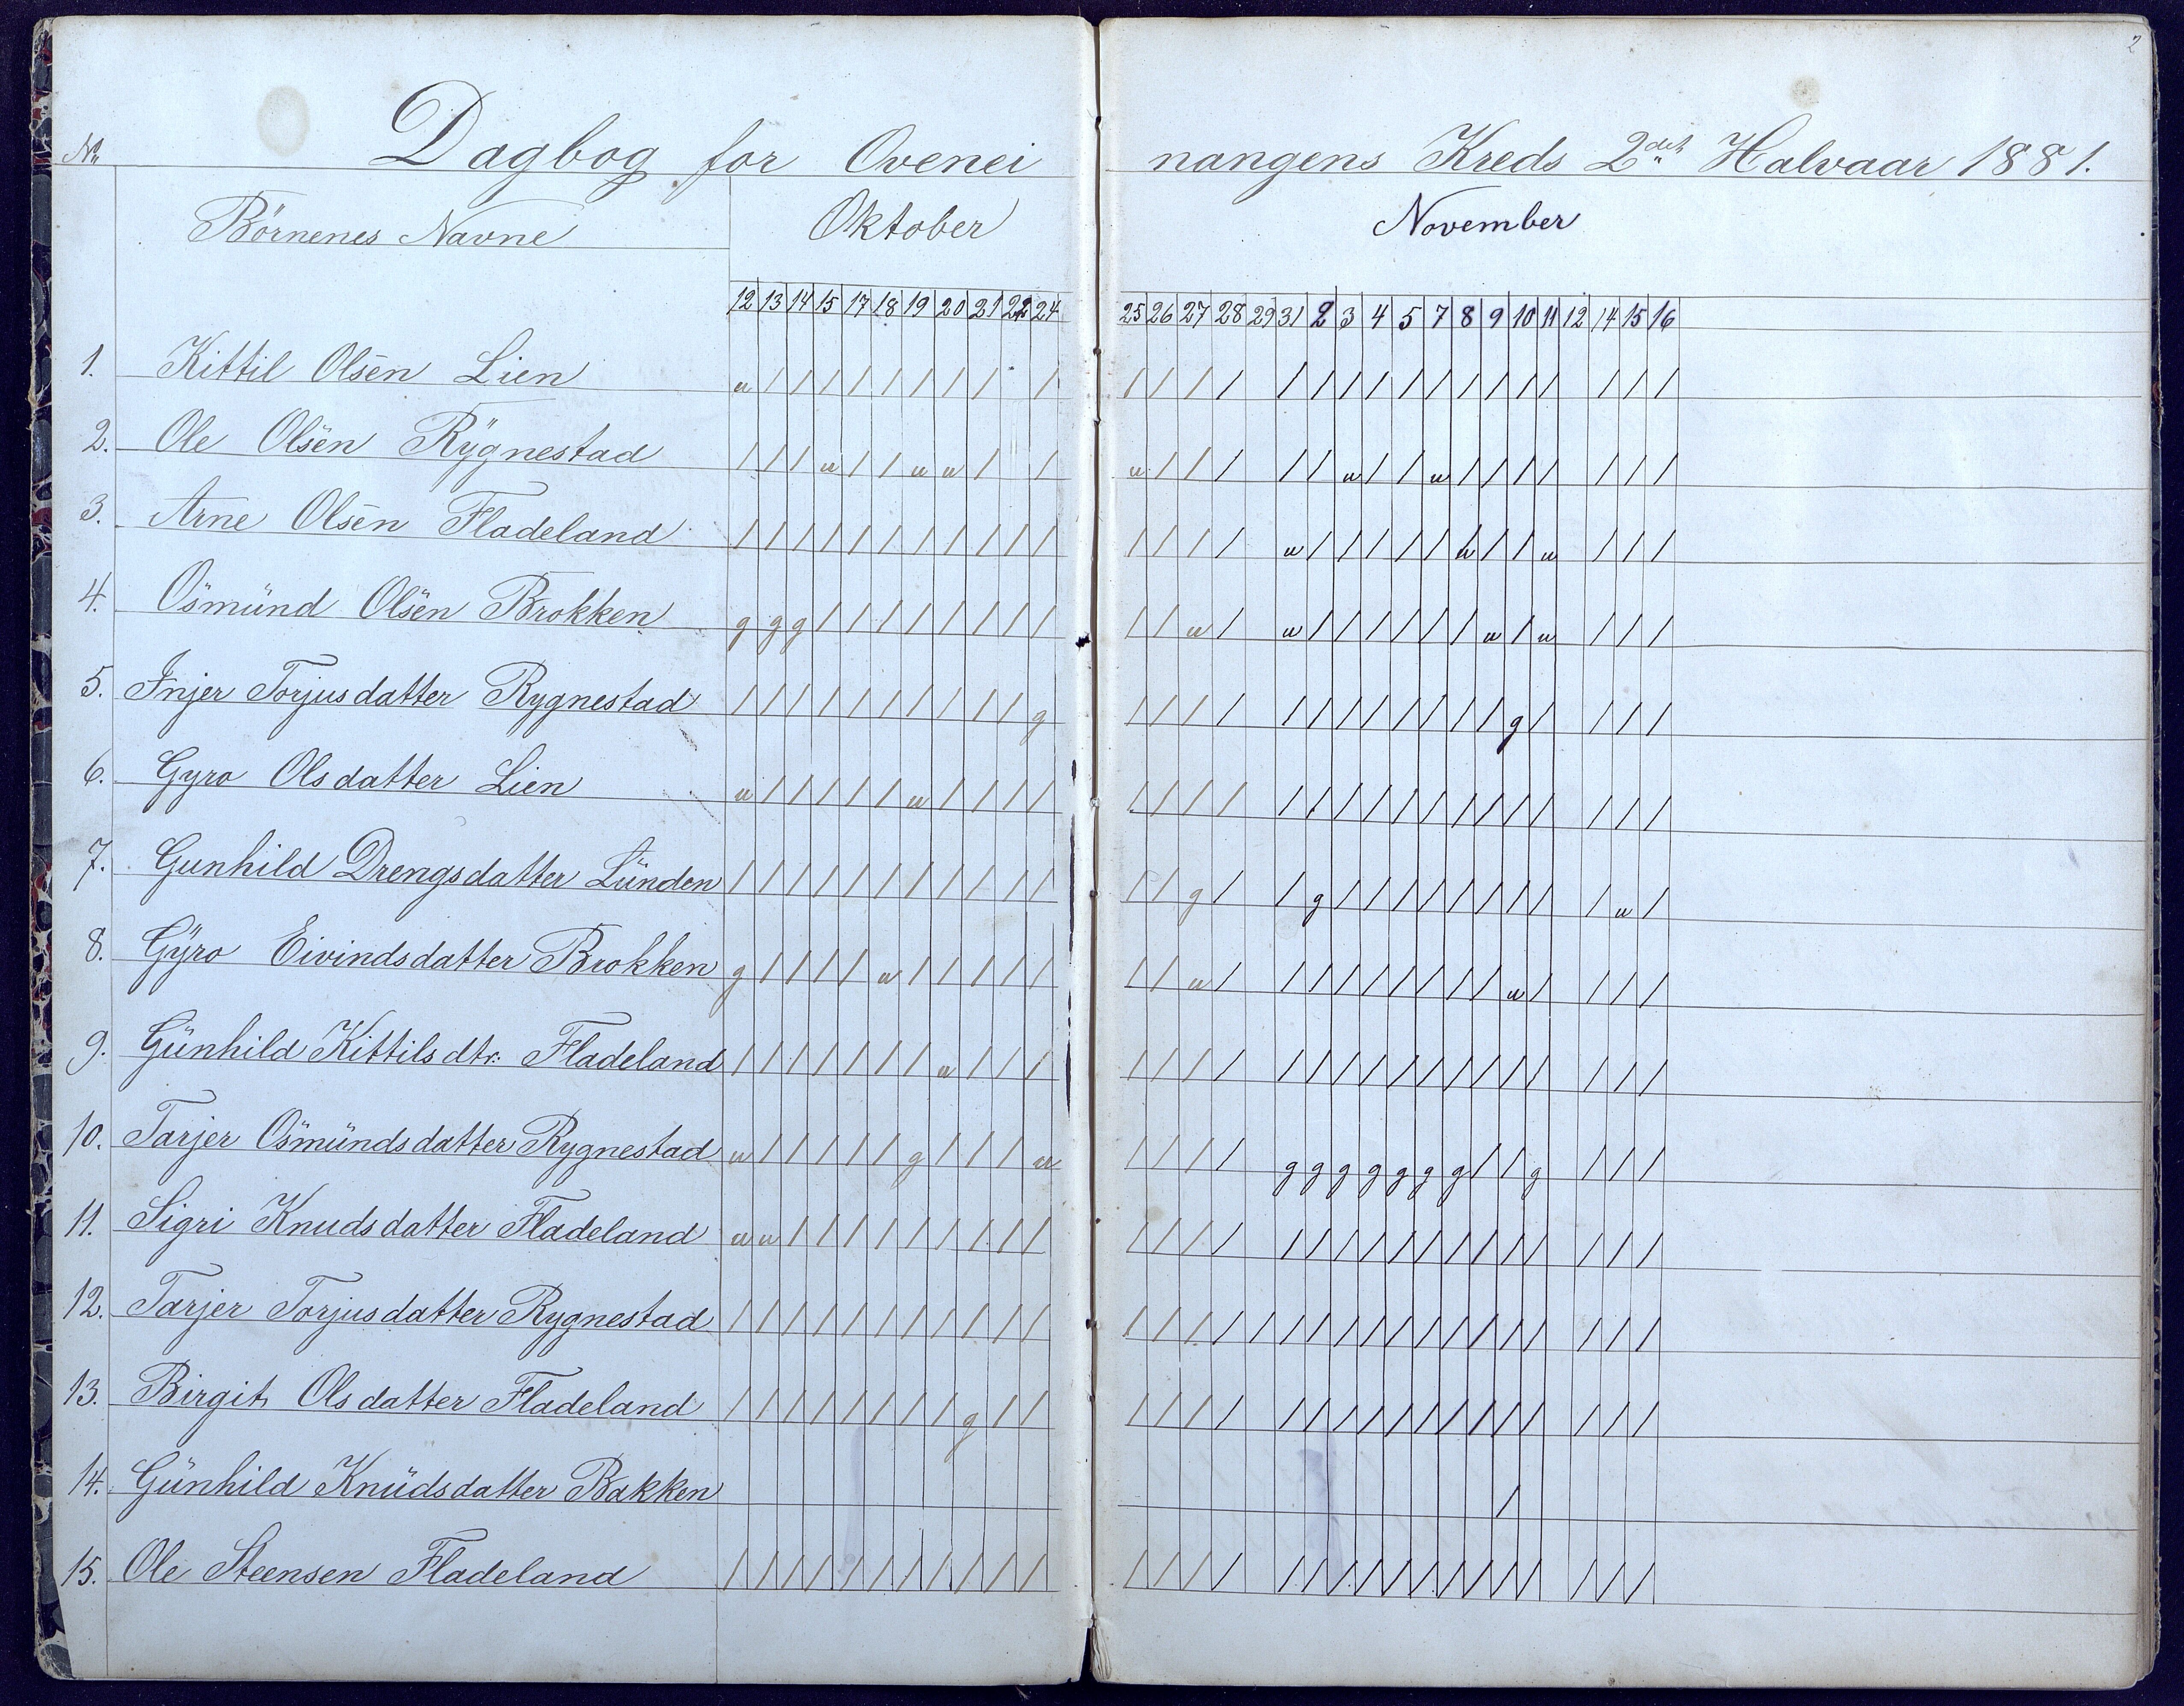 2
No Dagbog for Ovenei nangens Kreds 2det Halvaar 1881.
Børnenes Navne Oktober November
12 13 14 15 17 18 19 20 21 22 24 25 26 27 28 29 31 2 3 4 5 7 8 9 10 11 12 14 15 16
1. Kittil Olsen Lien u / / / / / / / / / / / / / / / / / / / / / / / / / /
2. Ole Olsen Rygnestad / / / u / / u u / / u / / / / / u / / u / / / / / / /
3. Arne Olsen Fladeland / / / / / / / / / / / / / / / u / / / / / u / / u / / /
4. Osmund Olsen Brokken g g g / / / / / / / / / / u / u / / / / / / u / u / / /
5. Injer Torjusdatter Rygnestad / / / / / / / / / / g / / / / / / / / / / / / g / / / /
6. Gyro Olsdatter Lien u / / / / / u / / / / / / / / / / / / / / / / / / / / /
7. Gunhild Drengsdatter Lunden / / / / / / / / / / / / / g / / g / / / / / / / / / u /
8. Gyro Eivindsdatter Brokken g / / / / u / / / / / / / u / / / / / / / / / u / / / /
9. Gunhild Kittilsdtr: Fladeland / / / / / / / u / / / / / / / / / / / / / / / / / / / /
10. Tarjer Osmundsdatter Rygnestad u / / / / / g / / / u / / / / g g g g g g g / / g / / /
11. Sigri Knudsdatter Fladeland u u / / / / / / / / / / / / / / / / / / / / / / / / / /
12. Tarjer Torjusdatter Rygnestad / / / / / / / / / / / / / / / / / / / / / / / / / / / / /
13. Birgit Olsdatter Fladeland / / / / / / / / g / / / / / / / / / / / / / / / / / / /
14. Gunhild Knudsdatter Bakken /
15. Ole Steensen Fladeland / / / / / / / / / / / / / / / / / / / / / / / / / / / /